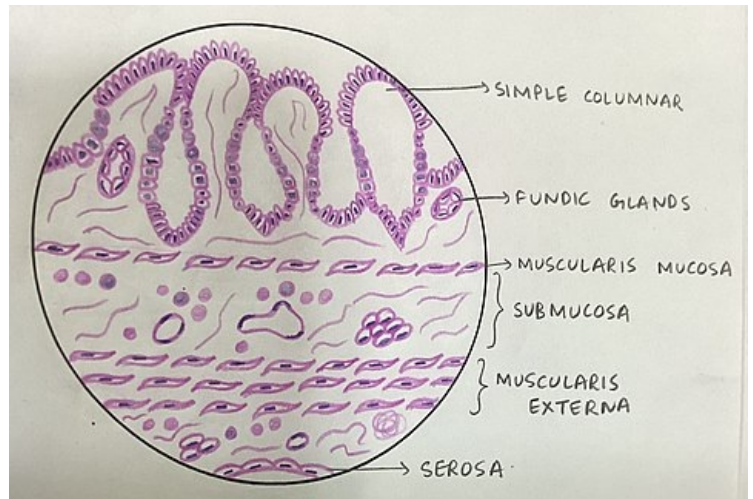 SIMPLE COLUMNAR
FUNDIC GLANDS
MUSCULARIS MUCOSA
SUBMUCOSA
MUSCULARIS
EXTERNA
SEROSA.